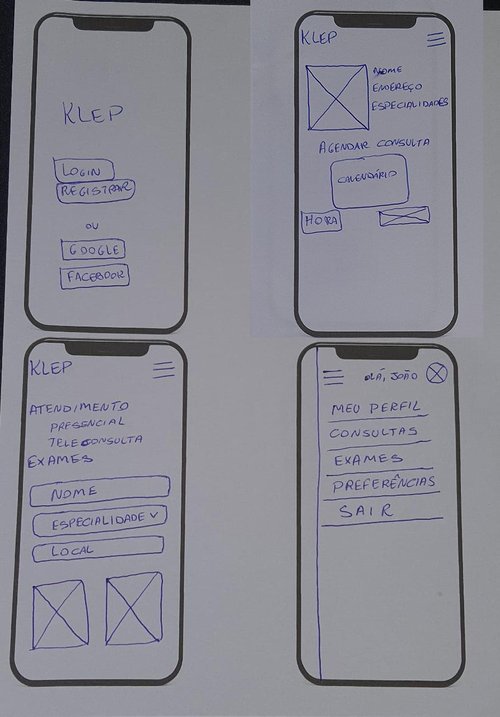 KLEP
LOGIN
REGISTRAR
OU
GOOGLE
FACEBOOK
KLEP
NOME
ENDEREÇO
ESPECIALIDADES
AGENDAR CONSULTA
CALENDÁRIO
HORA
KLEP
ATENDIMENTO
PRESENCIAL
TELECONSULTA
EXAMES
NOME
ESPECIALIDADE
LOCAL
OLÁ, JOÃO
MEU PERFIL
CONSULTAS
EXAMES
PREFERÊNCIAS
SAIR